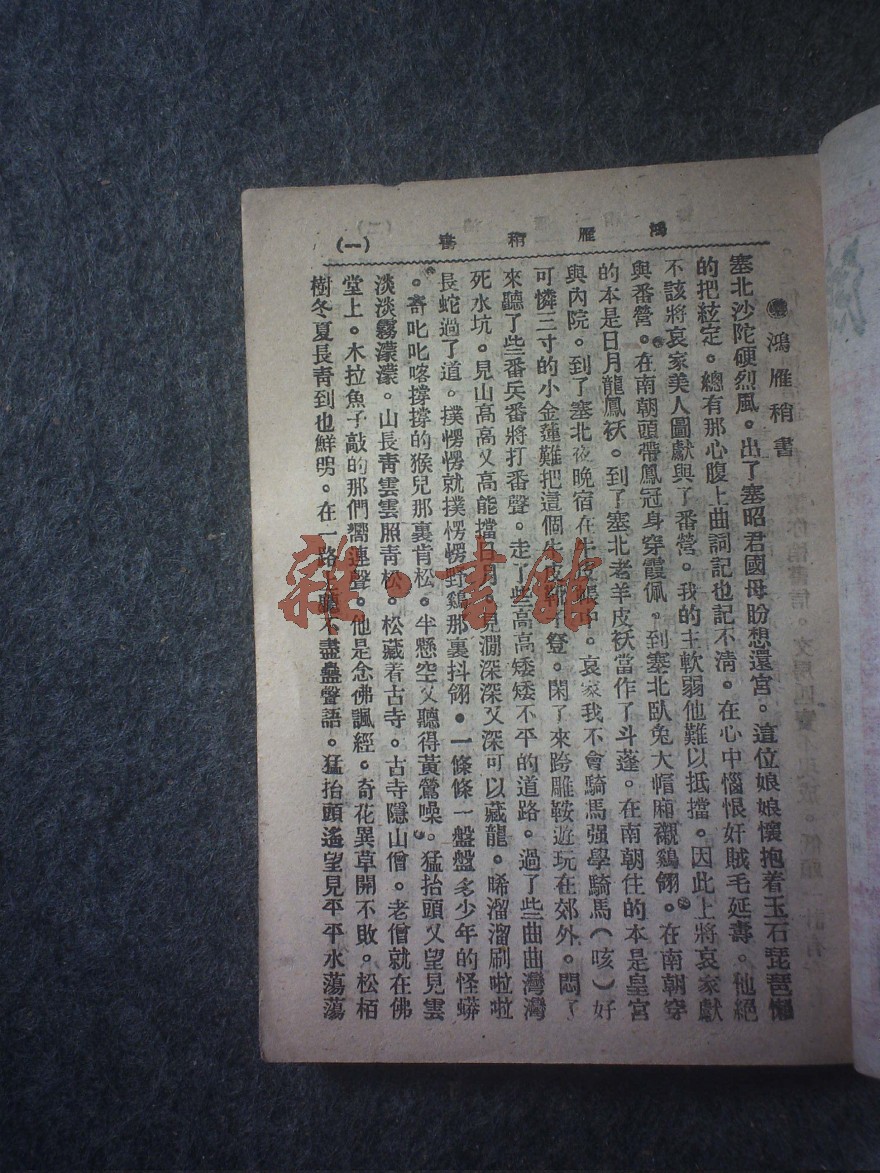 鴻雁稍書 (一)
鴻雁稍書
塞北沙陀硬烈風。出了塞昭君國母盼想還宮。這位娘娘懷抱着玉石琵琶懶
的把絃定。總有那心腹上曲詞記也記不清。在心中惱恨奸賊毛延壽。他絕
不該將哀家美人圖獻與了番營。我的主軟弱他難以抵擋。因此上將哀家獻
與番營。在南朝頭帶鳳冠身穿霞佩。到塞北臥兔大帽廂襯鷄翎。在南朝穿
的本是日月龍鳳袄。到了塞北老羊皮袄當作了斗蓬。在南朝住的本是皇宮
與內院。到了塞北夜晚宿在牛皮帳中。哀家我不會騎馬强學騎馬(咳)好
可憐三寸的小金蓮難把這個牛皮
登。閑了來跨雕鞍遊玩在郊外。悶了
來聽了些番兵番將打番聲。走了些高高矮矮不平的道路。過了些曲曲灣灣
死水坑。見山高高又高能擋日月。見澗深深又深可以藏龍。唏溜溜刷啦啦
長蛇過了道。撲愣愣就撲愣愣野鷄那裏抖翎。一條條一盤盤多少年的怪蟒
。奇叱叱喀撐撐的猴兒那裏肯松。半懸空又聽得黃鶯噪。猛抬頭又望見雲
淡淡霧濛濛。山長靑雲雲照靑松。松藏着古寺。古寺隱山僧。老僧就在佛
堂上。木拉魚子敲的那們嚮連聲。他是念佛諷經。奇花異草開不敗。松栢
樹冬夏長靑到也鮮明。在一路上聽不盡蠱聲語。猛抬頭遙望見平平水蕩蕩
雜·書館